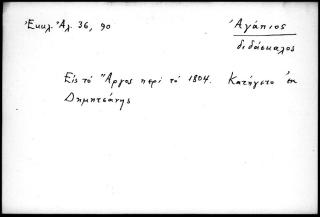 Ἐκκλ. Ἀλ. 36, 90
Ἀγάπιος
διδάσκαλος
Εἰς τὸ Ἄργος περὶ τὸ 1804. Κατήγετο ἐκ
Δημητσάνης